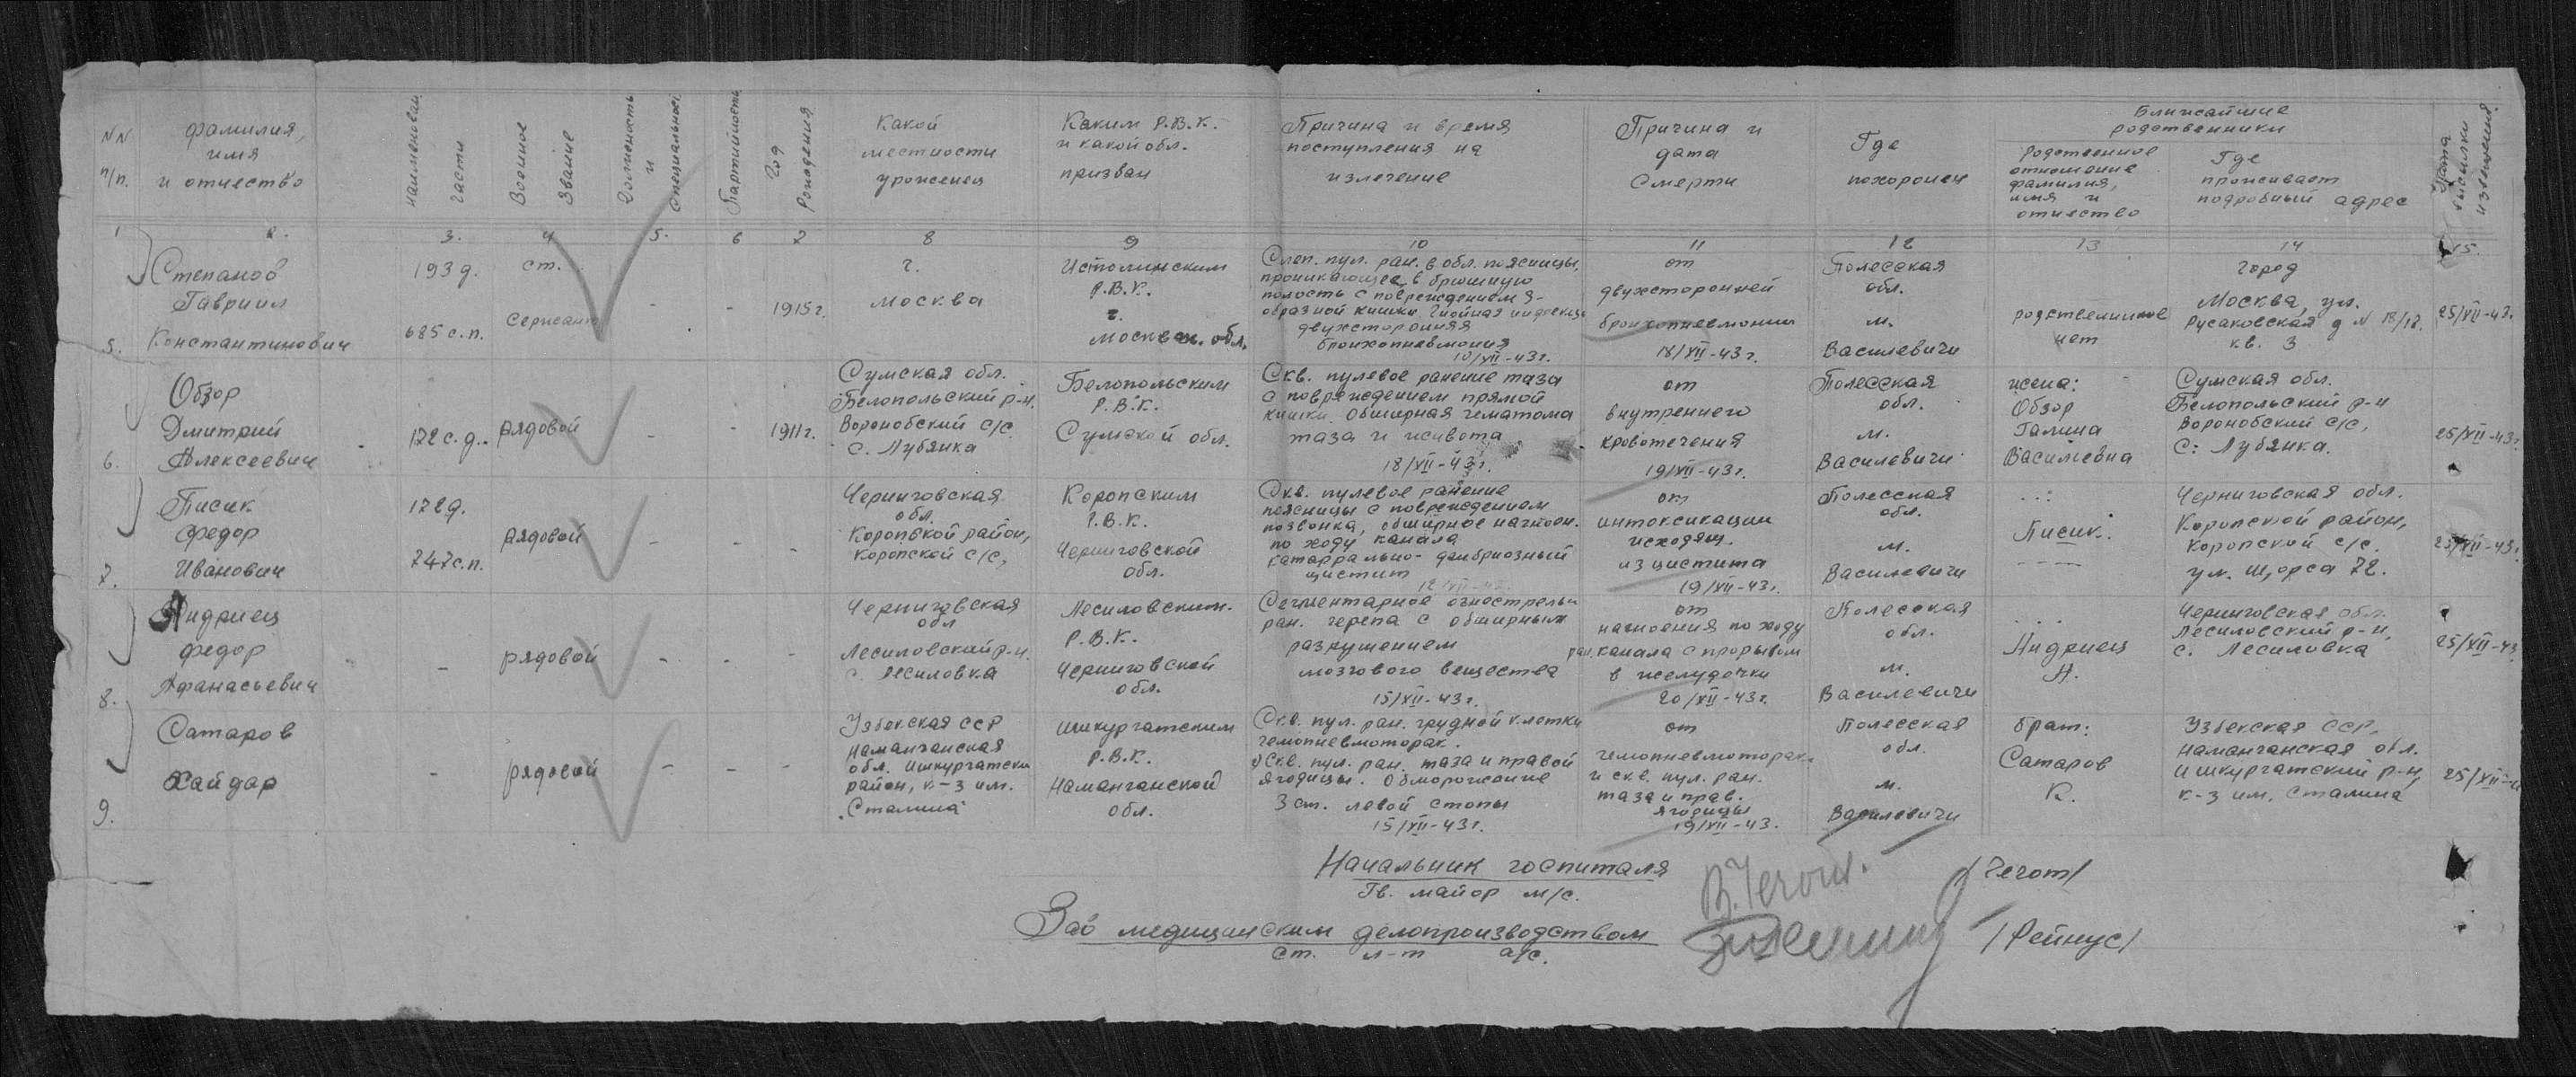 NN п/п.
фамилия, имя и отчество
Наименован. части
Военное звание
Должность и специальност
Партийность
Год рождения
Какой местности уроженец
Каким Р.В.К. и какой обл. призван
Причина и время поступления на излечение
Причина и дата смерти
Где похоронен
Ближайшие родственники
Родственное отношение фамилия, имя и отчество
Где проживает подробный адрес
Дата высылки извещения
1 2. 3. 4 5. 6 7 8 9 10 11 12 13 14 15.
5.
Степанов
Гавриил
Константинович
193 д.
685 с.п.
ст.
Сержант
- - 1915 г.
г.
Москва
Р.В.К.
г.
Москвск. обл.
Слеп. пул. ран. в обл. поясницы,
проникающее в брюшную
полость с повреждением S-
образной кишки. Гнойная
двухсторонняя
бронхопневмония
10/XII-43г.
от
двухсторонней
бронхопневмонии
18/XII-43г.
Полесская
обл.
м.
Василевичи
родственников
нет
город
Москва, ул.
Русаковская д N 18/12.
кв. 3
25/XII-43.
6.
Обзор
Дмитрий
Алексеевич
172 с.д.
рядовой
- - 1911 г.
Сумская обл.
Белопольский р-н.
Воронобский с/с
с. Лубянка
Белопольским
Р.В.К.
Сумской обл.
Скв. пулевое ранение таза
с повреждением прямой
кишки. Обширная гематома
таза и живота
18/XII-43г.
от
внутреннего
кровотечения
19/XII-43г.
Полесская
обл.
м.
Василевичи
жена:
Обзор
Галина
Васильевна
Сумская обл.
Белопольский р-н
Воронобский с/с,
с. Лубянка.
25/XII-43г
7.
Писик
Федор
Иванович
172 д.
747 с.п.
рядовой
- - -
Черниговская
обл.
Коропской район,
Коропской с/с,
Коропским
Р.В.К.
Черниговской
обл.
Скв. пулевое ранение
поясницы с повреждением
позвонка, обширное нагноен.
по ходу канала
катаррально-
цистит
12/XII-43
от
интоксикации
исходящ.
из цистита
19/XII-43г.
Полесская
обл.
м.
Василевичи
Писик.
----
Черниговская обл.
Коропской район,
Коропской с/с.
ул. Щорса 72.
25/XII-43г.
8.
Андриец
Федор
Афанасьевич
-
рядовой
- - -
Черниговская
обл
Лесиловский р-н.
с. Лесиловка
Лесиловским.
Р.В.К.
Черниговской
обл.
Сегментарное огнестрельн
ран. черепа с обширным
разрушением
мозгового вещества
15/XII-43г.
от
нагноения по ходу
ран. канала с прорывом
в желудочки
20/XII-43г.
Полесская
обл.
м.
Василевичи
Андриец
А.
Черниговская обл.
Лесиловский р-н,
с. Лесиловка
25/XII-43
9.
Сатаров
Хайдар
-
рядовой
- - -
Узбекская ССР
Наманганская
обл. Ишкургатски
район, к-з им.
Сталина
Ишкургатским
Р.В.К.
Наманганской
обл.
Скв. пул. ран. грудной клетки
гемопневмоторак.
Скв. пул. ран. таза и правой
ягодицы. Обморожение
3 ст. левой стопы
15/XII-43г.
от
гемопневмоторакс
и скв. пул. ран.
таза и прав.
ягодицы
19/XII-43.
Полесская
обл.
м.
Василевичи
брат:
Сатаров
К.
Узбекская ССР,
Наманганская обл.
Ишкургатский р-н,
к-з им. Сталина
25/XII-4
Начальник госпиталя
Гв. майор м/с.
/Чегот/
Зав медицинским делопроизводством
ст. л-т а/с.
/Рейнус/